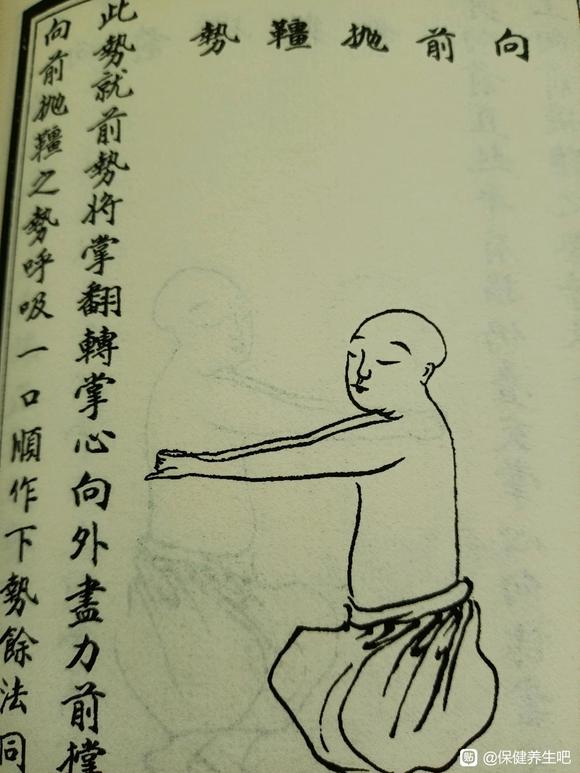 向前抛韁勢
此勢就前勢將掌翻轉掌心向外盡力前
向前抛韁之勢呼吸一口順作下勢餘法同
贴 @保健养生吧